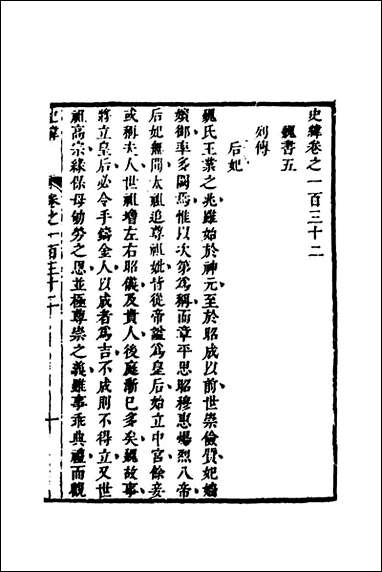 史緯卷之一百三十二
魏書五
列傳
后妃
魏氏王業之兆雖始於神元至於昭成以前世崇儉質妃嬙
嬪御率多闕焉惟以次第爲稱而章平思昭穆惠煬烈八帝
后妃無聞太祖追尊祖妣皆從帝謚爲皇后始立中宮餘妾
或稱夫人世祖增左右昭儀及貴人後庭漸已多矣魏故事
將立皇后必令手鑄金人以成者爲吉不成則不得立又世
祖高宗緣保母劬勞之恩並極尊崇之義雖事乖典禮而觀
史緯 卷之一百三十二